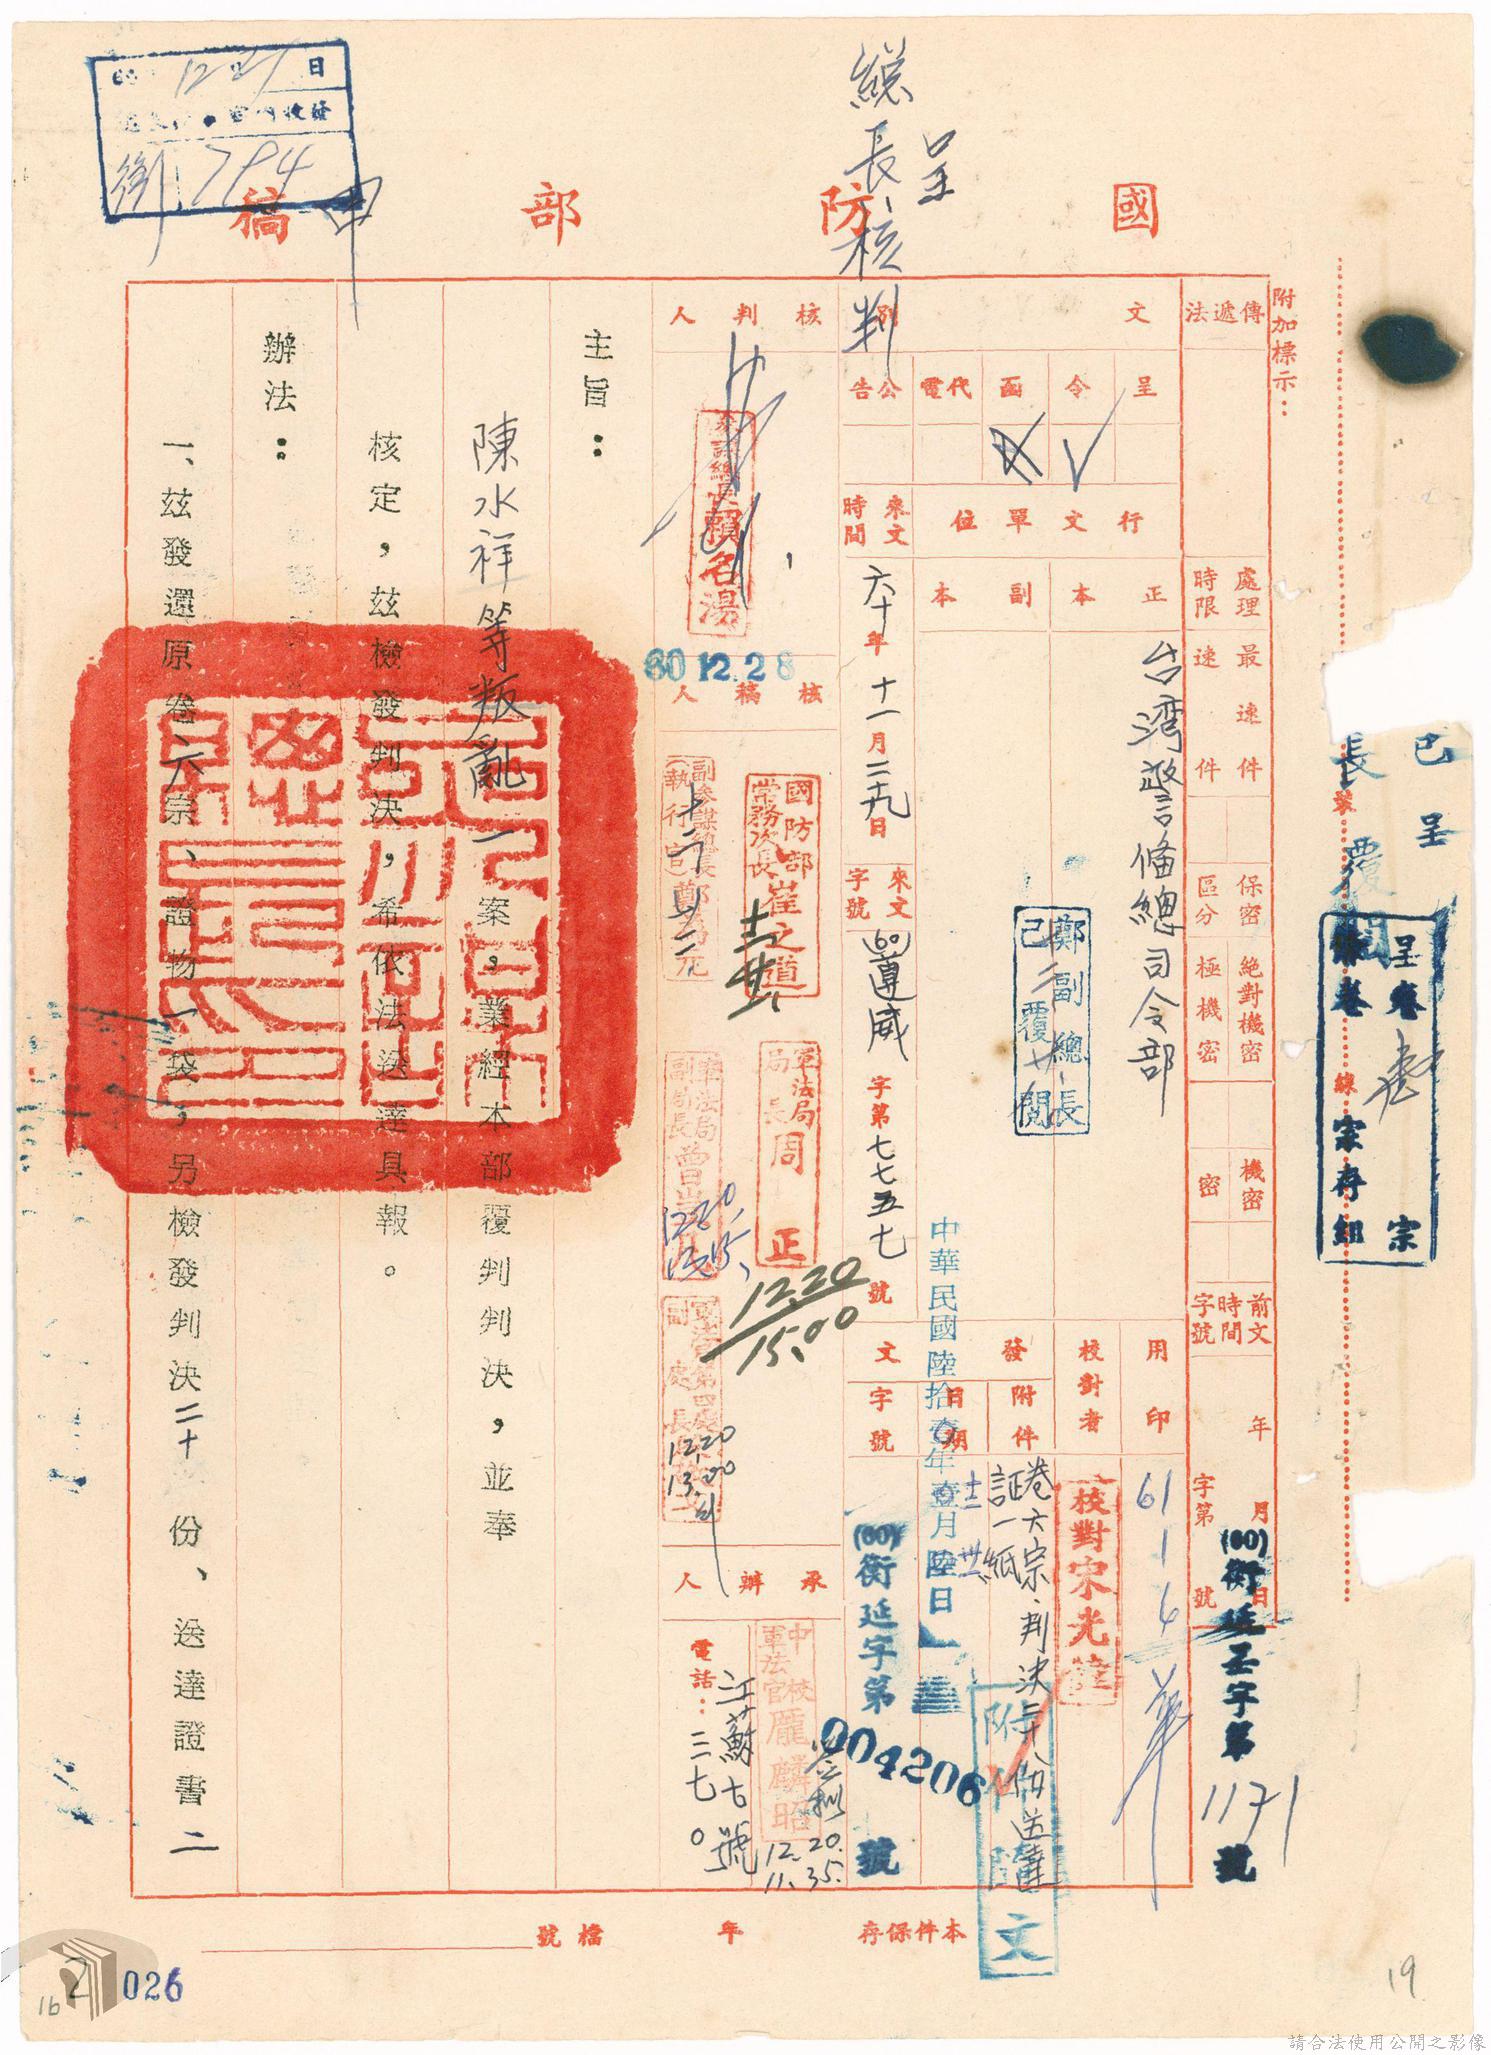 呈
總長核判
國防部稿
附加標示：
傳遞法
處理時限
最速件
速件
保密區分
絕對機密
極機密
機密
密
前文時間字號
年
月
日
字第
號
文別
呈
令
函
代電
公告
行文單位
正本
副本
台灣警備總司令部
鄭副總長
已覆閱
來文時間
六十年十一月二十九日
來文字號
(60)遵威字第七七五七號
用印
61 1 6
校對者
校對宋光
發文
附件
卷六宗、判決二十八份送達
証一紙
日期
中華民國陸拾壹年壹月陸日
字號
(60)衡延字第
004206
號
附件隨文
核判人
參謀總長賴名湯
60.12.28
核稿人
國防部
常務次長崔之道
副參謀總長
(執行官)鄭為元
軍法局
局長周正
12.20
15.00
軍法局
副局長曾
12.20
軍法局第四處
副處長
12.20
13.00
承辦人
中校
軍法官龐麟昭
12.20.
11.35.
江蘇古號
電話：三七０
主旨：
陳水祥等叛亂一案，業經本部覆判判決，並奉
核定，茲檢發判決，希依法送達具報。
辦法：
一、茲發還原卷六宗、證物一袋，另檢發判決二十份、送達證書二
本件保存
年
檔號
已呈
長覆閱
呈卷宗
卷宗存組
線
(60)衡延字第
1171
號
60 12 21 日
收發
衡 794
026
2
16
19
請合法使用公開之影像